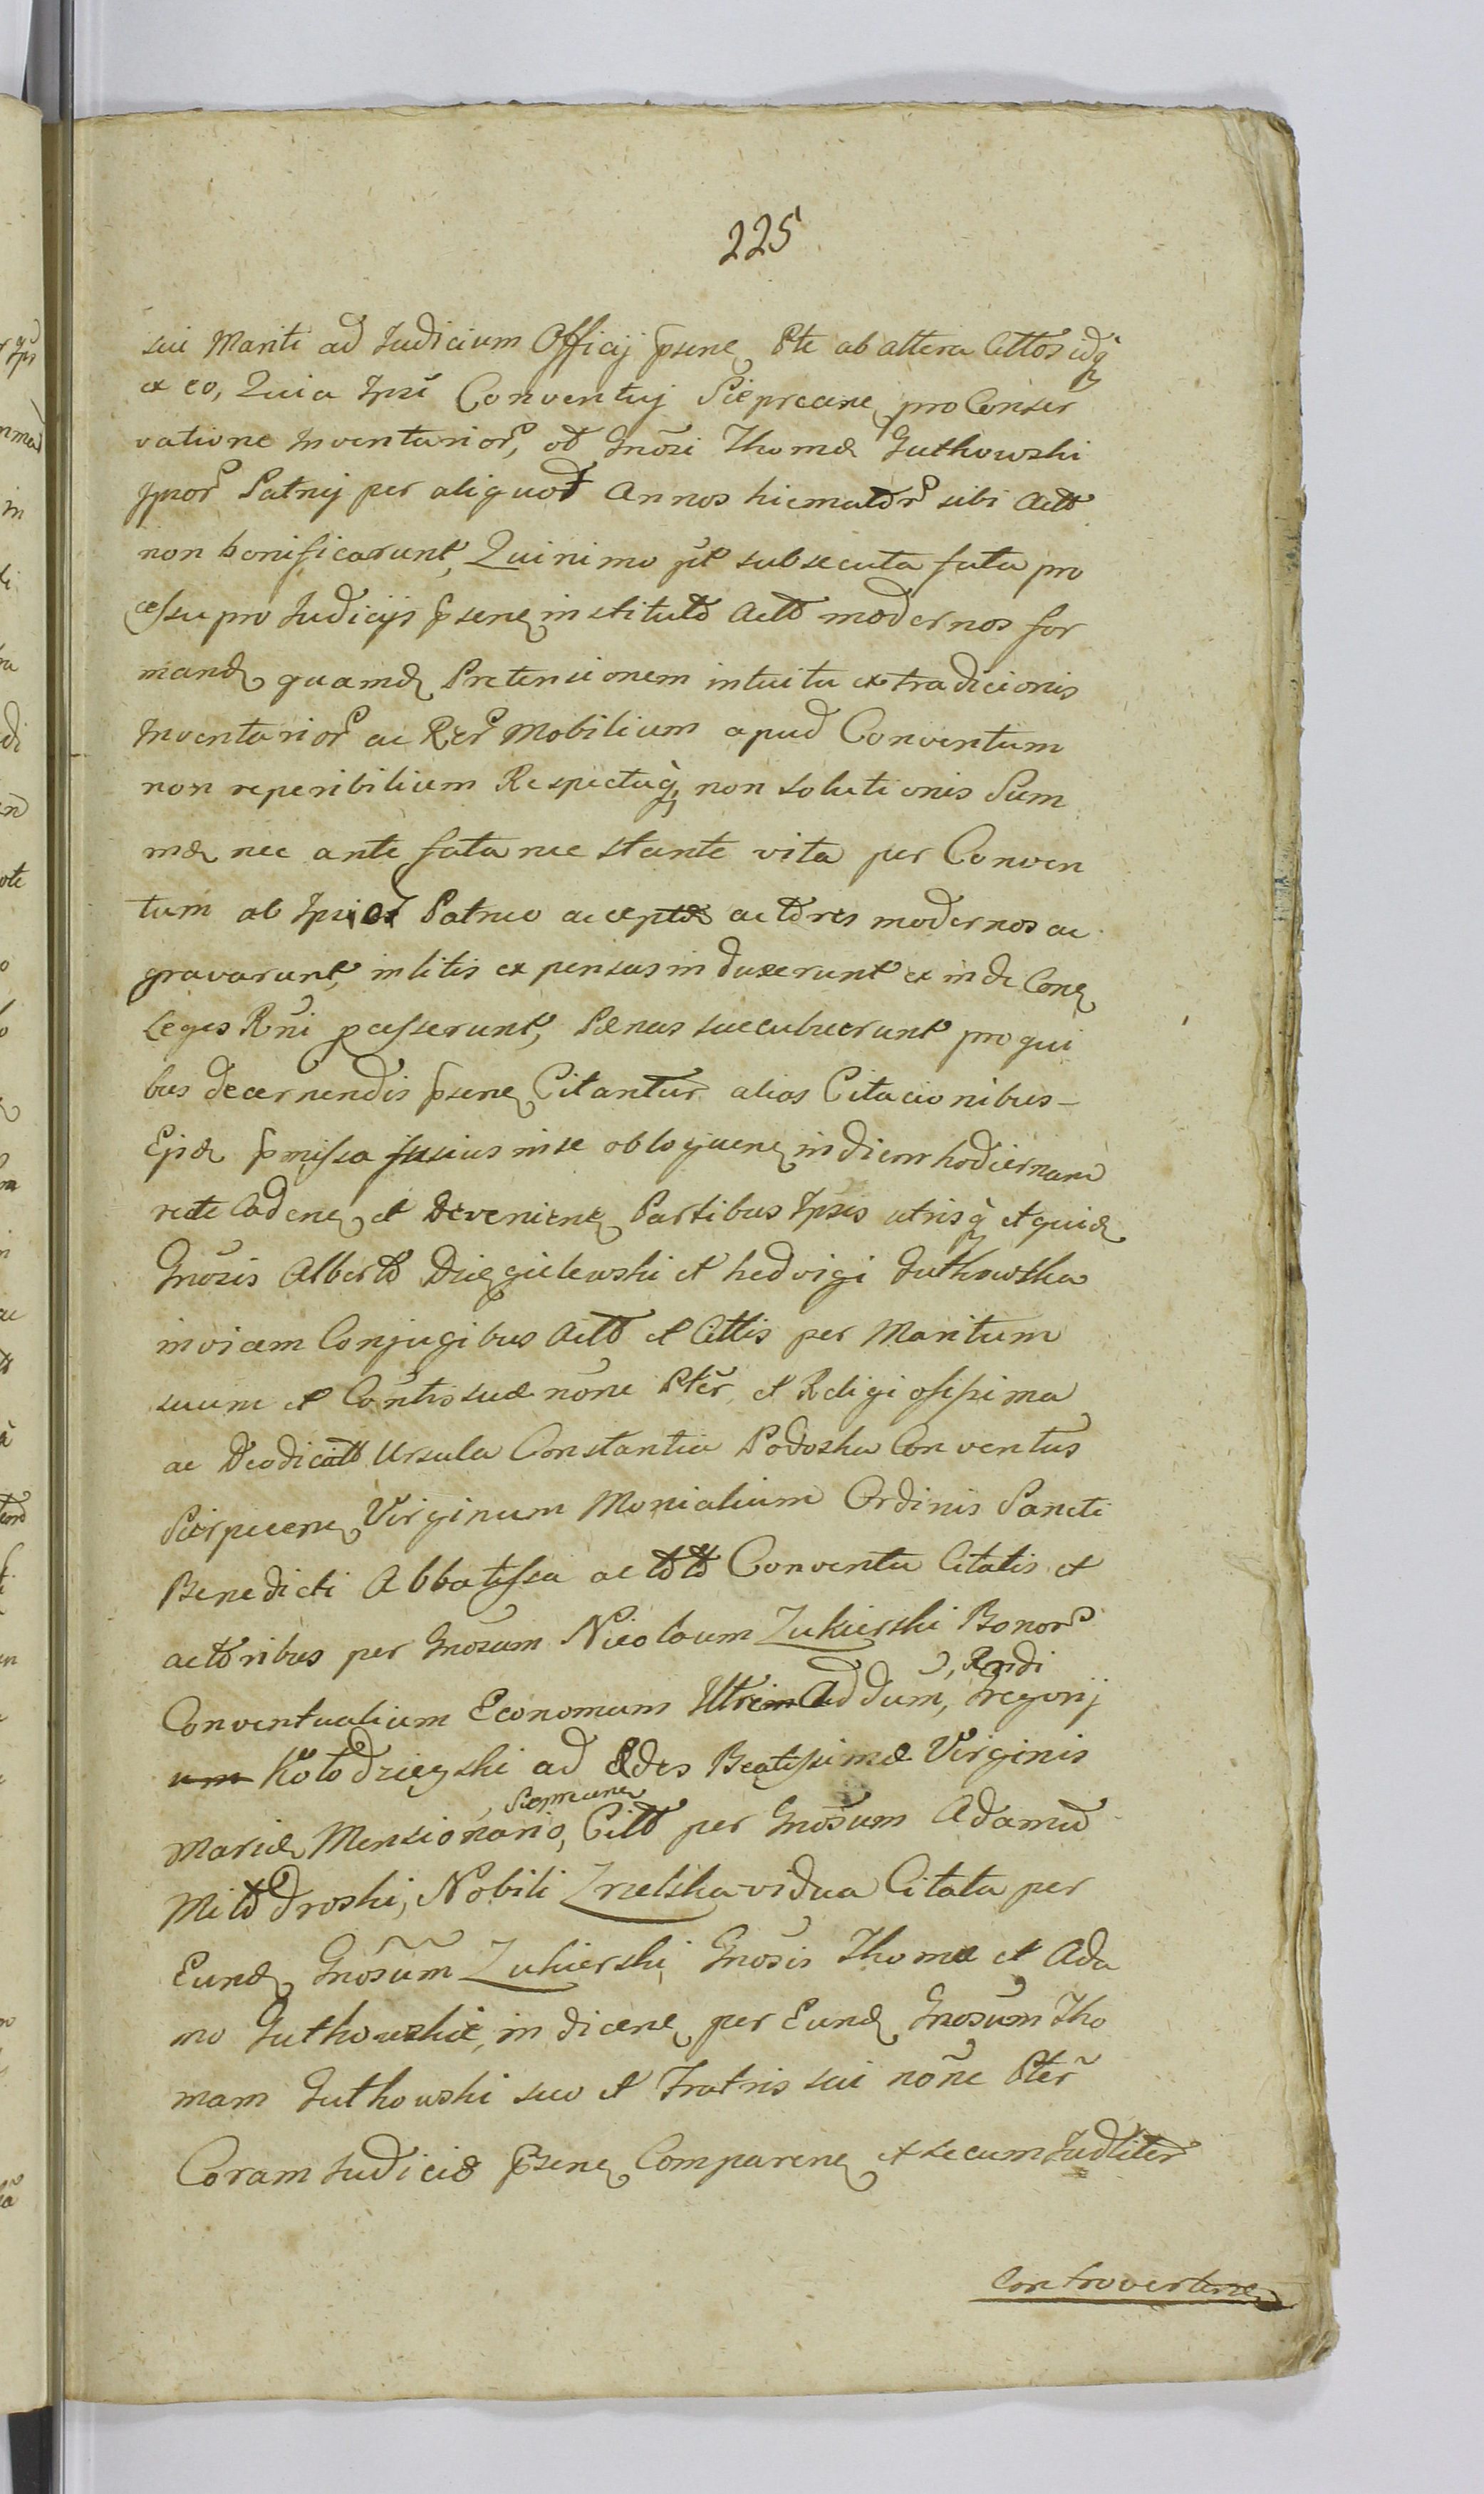 225
sui Mariti ad Judicium Officij psene Pte ab altera Cttos idq
ex eo, Quia Ipsi Conventuj Siepreane pro Conser
vatione Inventarior, od Gnosi Thomæ Gutkowski
Ipsor Patruj per aliquot Annos hiemator sibi Actt
non bonificarunt, Quinimo pt subsecuta fata pro
cessu pro Judicijs psene institutt Actt modernos for
mand quamd Pretensionem intuitu extradicionis
Inventarior ac Rer Mobilium apud Conventum
non reperibilium Respectuq, non solutionis Sum
mæ nec ante fata nec stante vita per Conven
tum ab Ipsior Patruo acceptæ actores modernos ac
gravarunt, in litis expensas induxerunt ex inde Cone
Leges Rni passerunt, Pænas succubuerunt pro qui
bus decernendis psene Citantur alias Citacionibus-
Ejsd pmissa fusius in se obloquene in diem hodiernam
recte Cadene et Deveniene Partibus Ipsis utrisq et quid
Gnosis Alberto Dzięgielewski et hedvigi Gutkowska
invicem Conjugibus Actt et Cttis per Maritum
suum et Contis suæ none Pter et Religiosissima
ac Deodicatt Ursula Constantia Podoska Conventus
Sierpecene Virginum Monialium Ordinis Sancti
Benedicti Abbatissa ac tto Conventu Citatis et
actoribus per Gnosum Nicolaum Zukierski Bonor
Conventualium Economum Addum, Rndi Gregorij
um Kołodzieyski ad Ædes Beatissimæ Virginis
Mariæ Mensionario, Siepreane Citt per Gnosum Adamum
Mitodroski, Nobili Zrzelska vidua Citata per
Eund Gnosum Zukierski Gnosis Thoma et Ada
mo Gutkowskie, indicene per Eund Gnosum Tho
mam Gutkowski suo et Fratris sui none Pter
Coram Judicio psene Comparene et secum Judliter
Controvertene